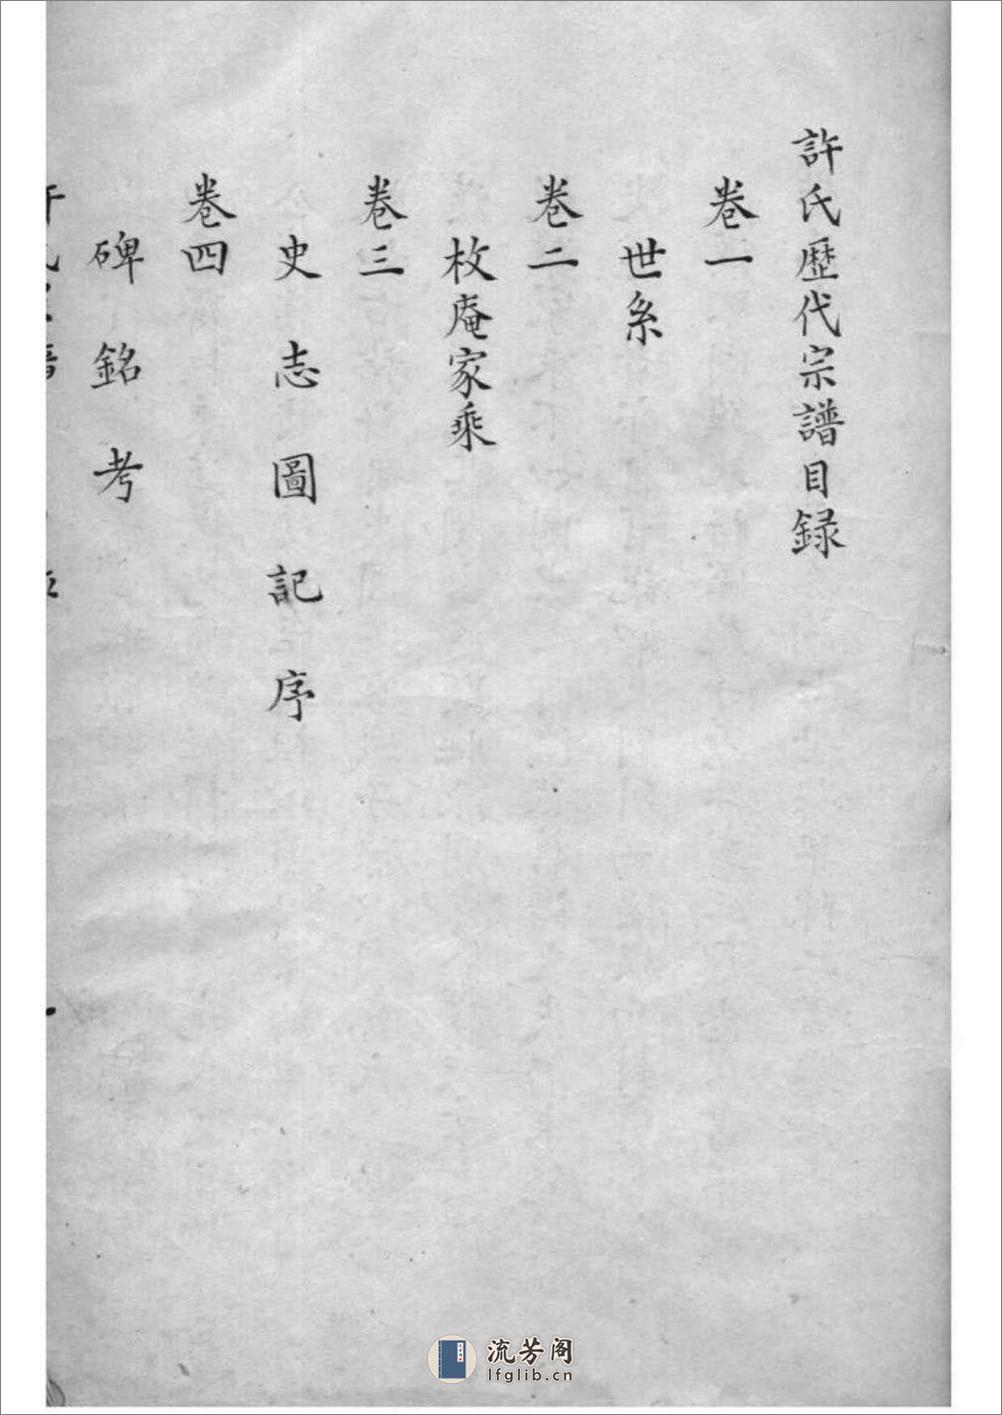 許氏歷代宗譜目録
卷一
世系
卷二
枚庵家乘
卷三
史志圖記序
卷四
碑銘考
流芳阁
lfglib.cn